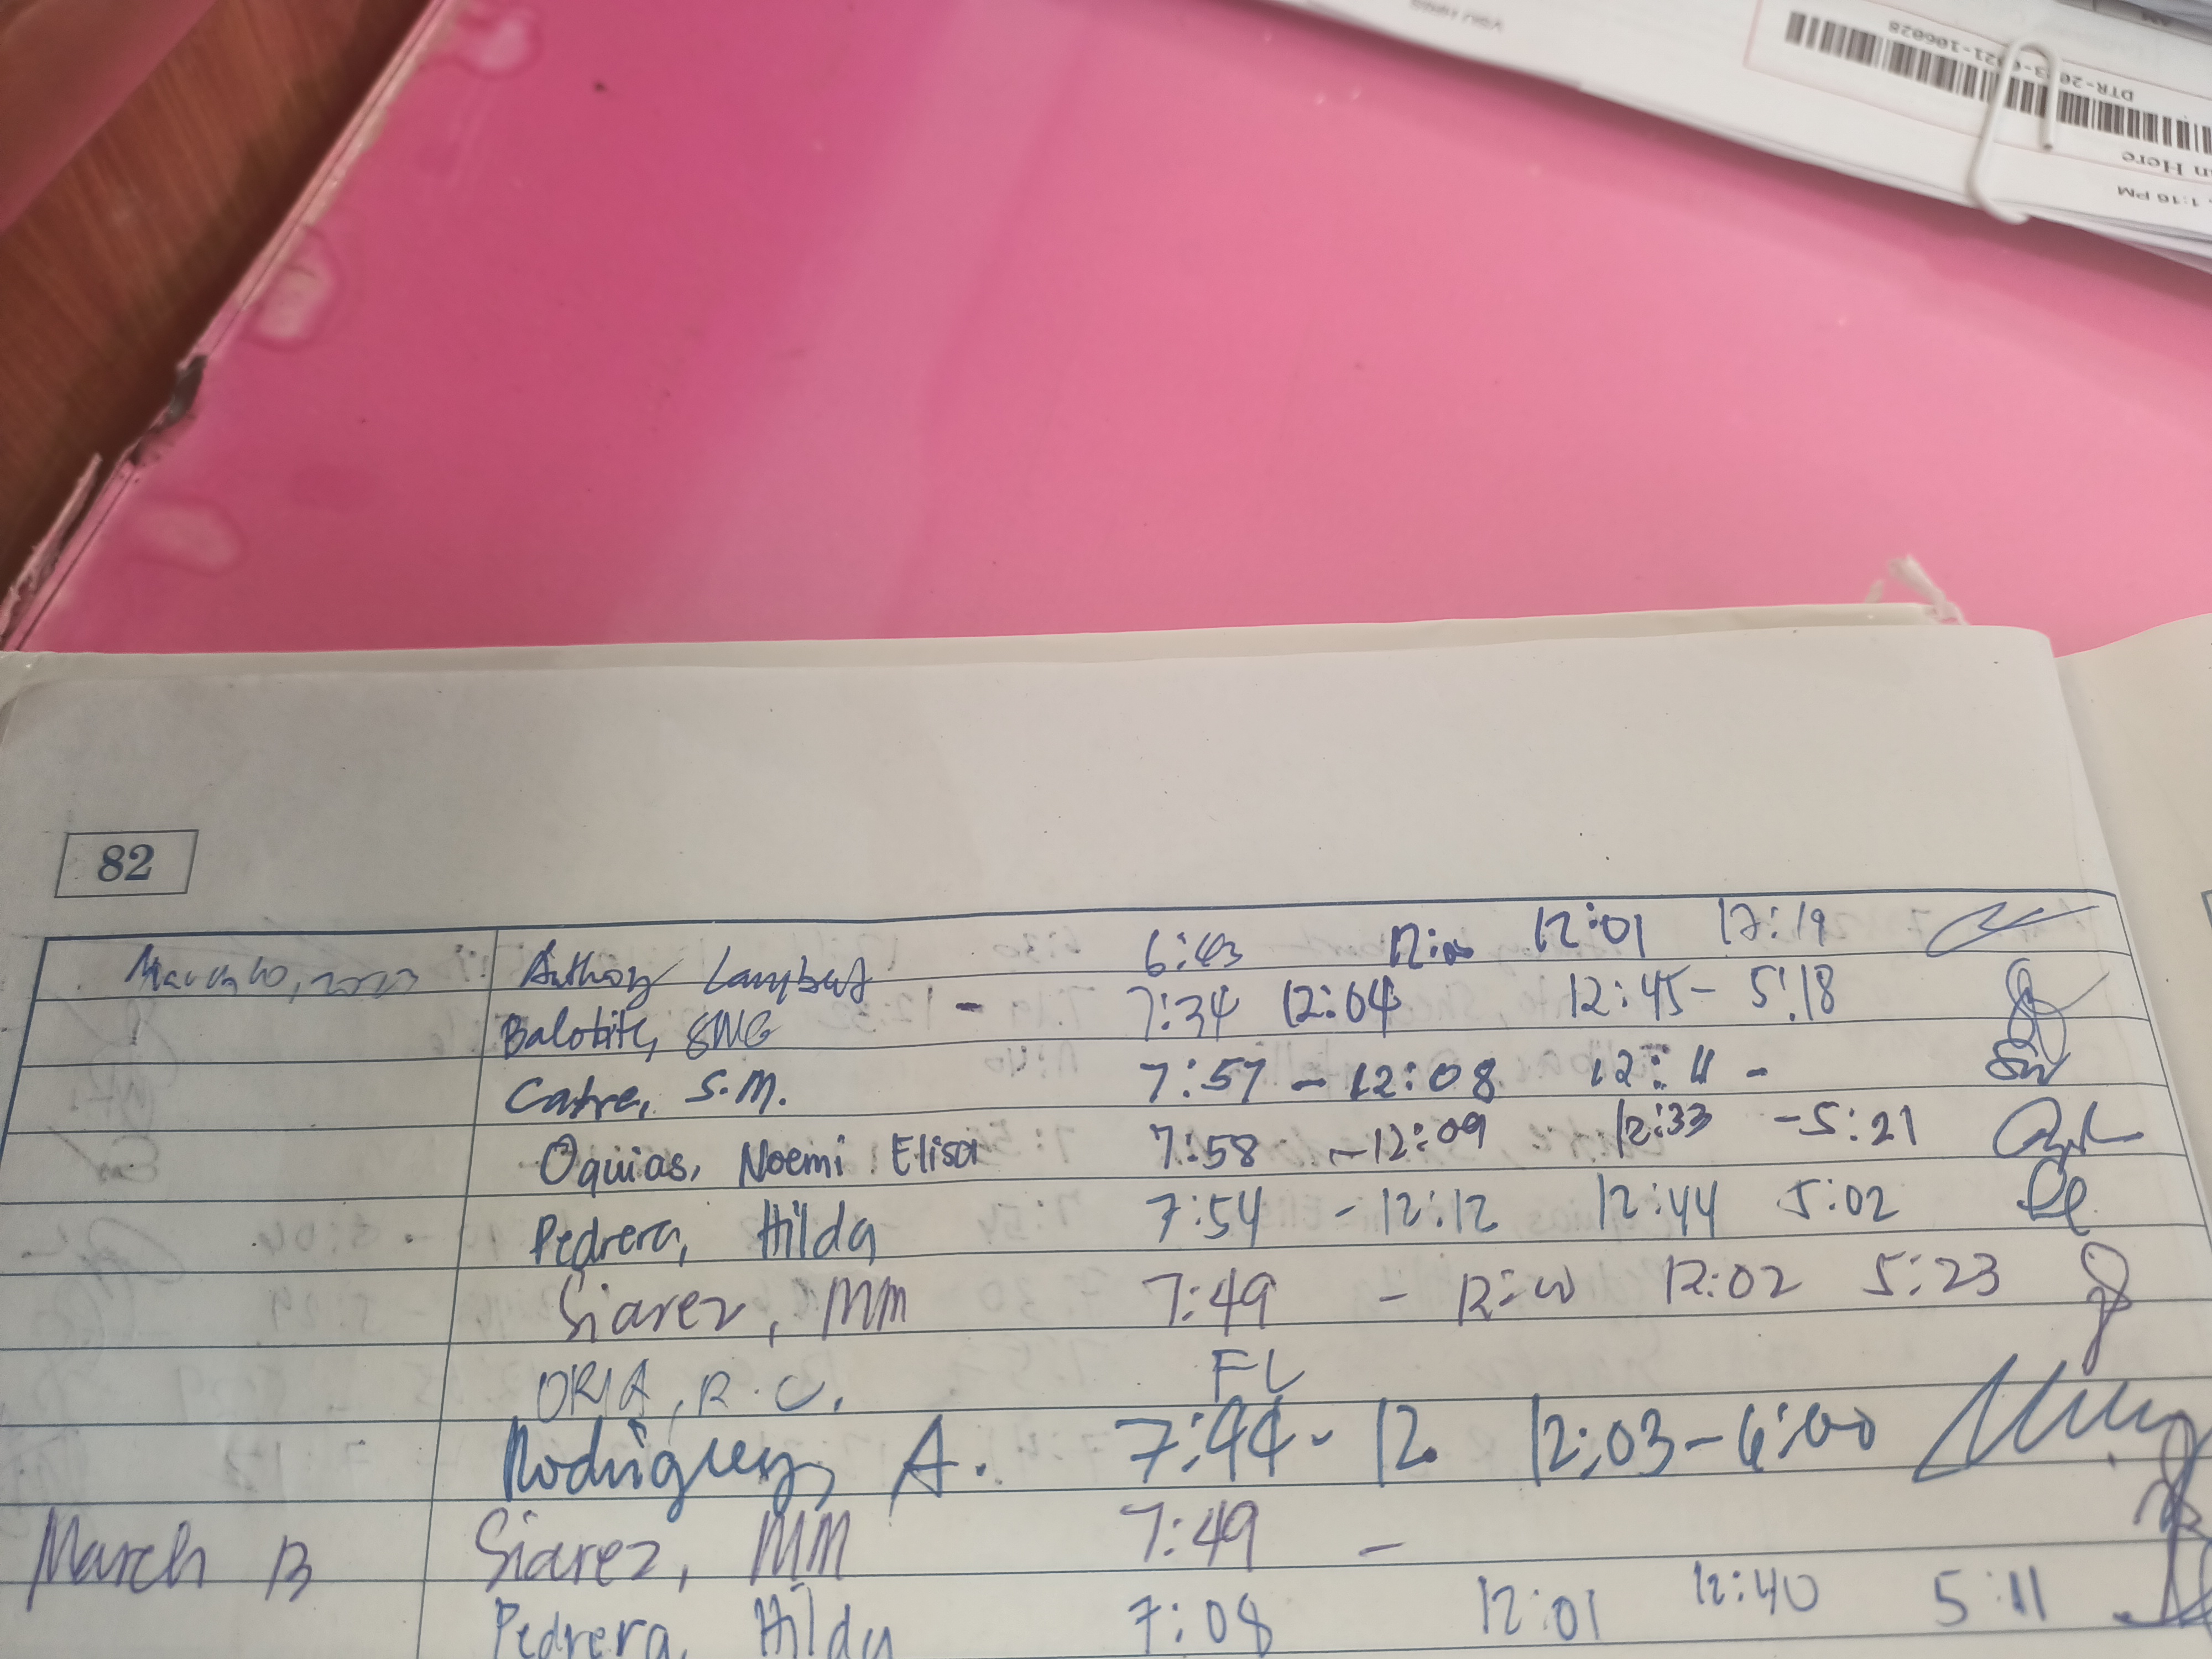 DTR-2023-0321-106028
n Here
1:16 PM
82
March 10, 2023 Anthony Lambert 6:43 12:00 12:01 17:19
Balotite, SMG - 7:34 12:04 12:45 - 5:18
Catre, S.M. 7:57 - 12:08 12:11 -
Oquias, Noemi Elisa 7:58 - 12:09 12:33 - 5:21
Pedrera, Hilda 7:54 - 12:12 12:44 5:02
Siarez, MM 7:49 - 12:00 12:02 5:23
ORIA, R.C. FL
Rodriguez, A. 7:44 - 12 12:03 - 6:00
March 13 Siarez, MM 7:49 -
Pedrera, Hilda 7:08 12:01 12:40 5:11